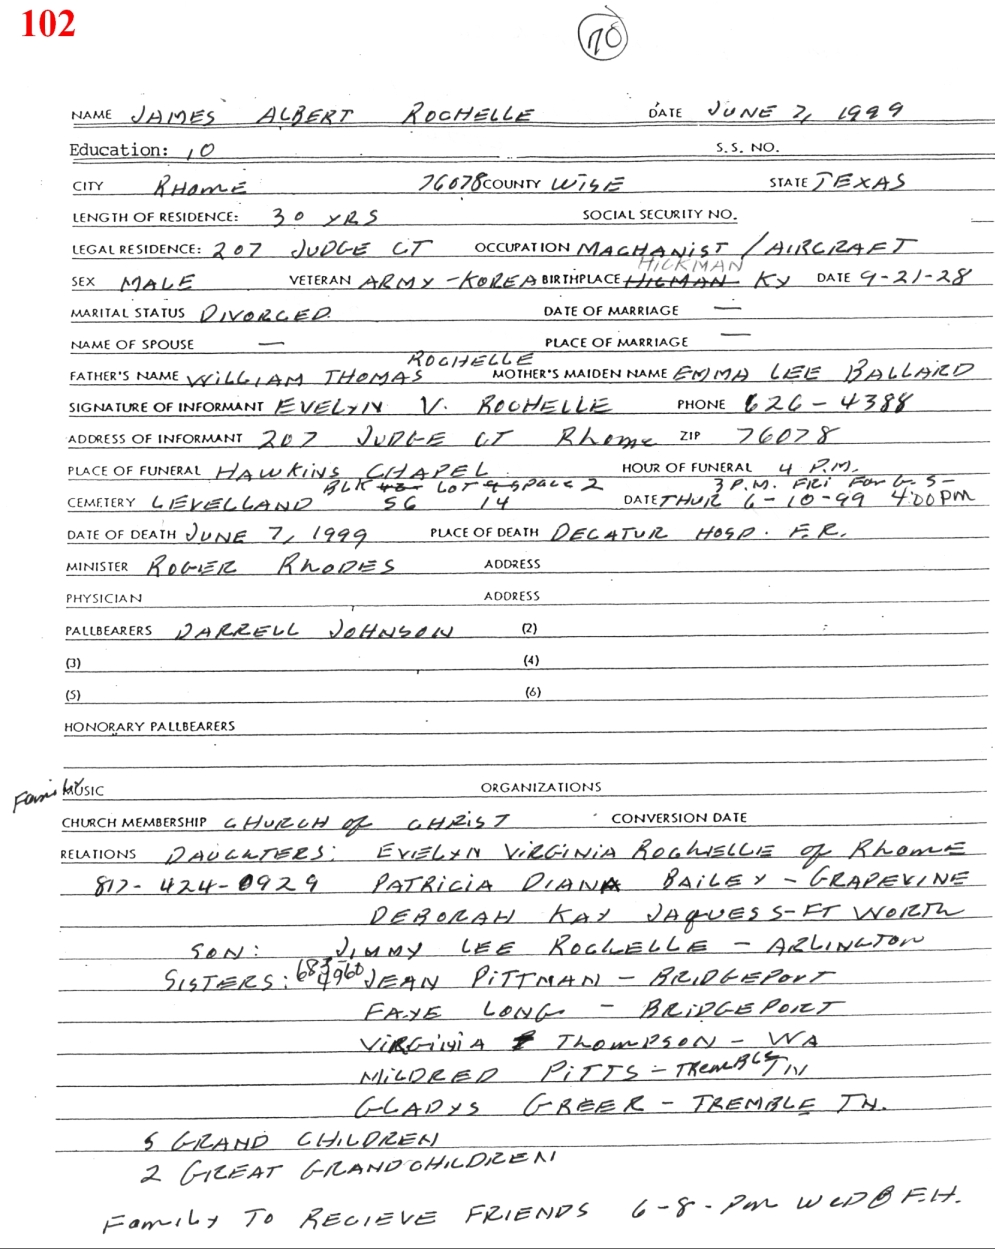 102
70
NAME JAMES ALBERT ROCHELLE DATE JUNE 7, 1999
Education: 10 S.S. NO.
CITY RHOME 76078 COUNTY WISE STATE TEXAS
LENGTH OF RESIDENCE: 30 YRS SOCIAL SECURITY NO.
LEGAL RESIDENCE: 207 JUDGE CT OCCUPATION MACHANIST / AIRCRAFT
HICKMAN
SEX MALE VETERAN ARMY - KOREA BIRTHPLACE HICMAN KY DATE 9-21-28
MARITAL STATUS DIVORCED DATE OF MARRIAGE —
NAME OF SPOUSE — PLACE OF MARRIAGE —
ROCHELLE
FATHER'S NAME WILLIAM THOMAS MOTHER'S MAIDEN NAME EMMA LEE BALLARD
SIGNATURE OF INFORMANT EVELYN V. ROCHELLE PHONE 626-4388
ADDRESS OF INFORMANT 207 JUDGE CT Rhome ZIP 76078
PLACE OF FUNERAL HAWKINS CHAPEL HOUR OF FUNERAL 4 P.M.
BLK LOT SPACE 2 3 P.M. FRI For G. S-
CEMETERY LEVELLAND 56 14 DATE THUR 6-10-99 4:00 PM
DATE OF DEATH JUNE 7, 1999 PLACE OF DEATH DECATUR HOSP. E.R.
MINISTER ROGER RHODES ADDRESS
PHYSICIAN ADDRESS
PALLBEARERS DARRELL JOHNSON (2)
(3) (4)
(5) (6)
HONORARY PALLBEARERS
Family MUSIC ORGANIZATIONS
CHURCH MEMBERSHIP CHURCH of CHRIST CONVERSION DATE
RELATIONS DAUGHTERS: EVELYN VIRGINIA ROCHELLE of Rhome
817-424-0929 PATRICIA DIANA BAILEY - GRAPEVINE
DEBORAH KAY JAQUESS - FT WORTH
SON: JIMMY LEE ROCHELLE - ARLINGTON
SISTERS: 683-4960 JEAN PITTMAN - BRIDGEPORT
FAYE LONG - BRIDGEPORT
VIRGINIA THOMPSON - WA
MILDRED PITTS - TREMBLE TN
GLADYS GREER - TREMBLE TN.
5 GRAND CHILDREN
2 GREAT GRANDCHILDREN
Family TO RECIEVE FRIENDS 6-8-Pm WED @ F.H.